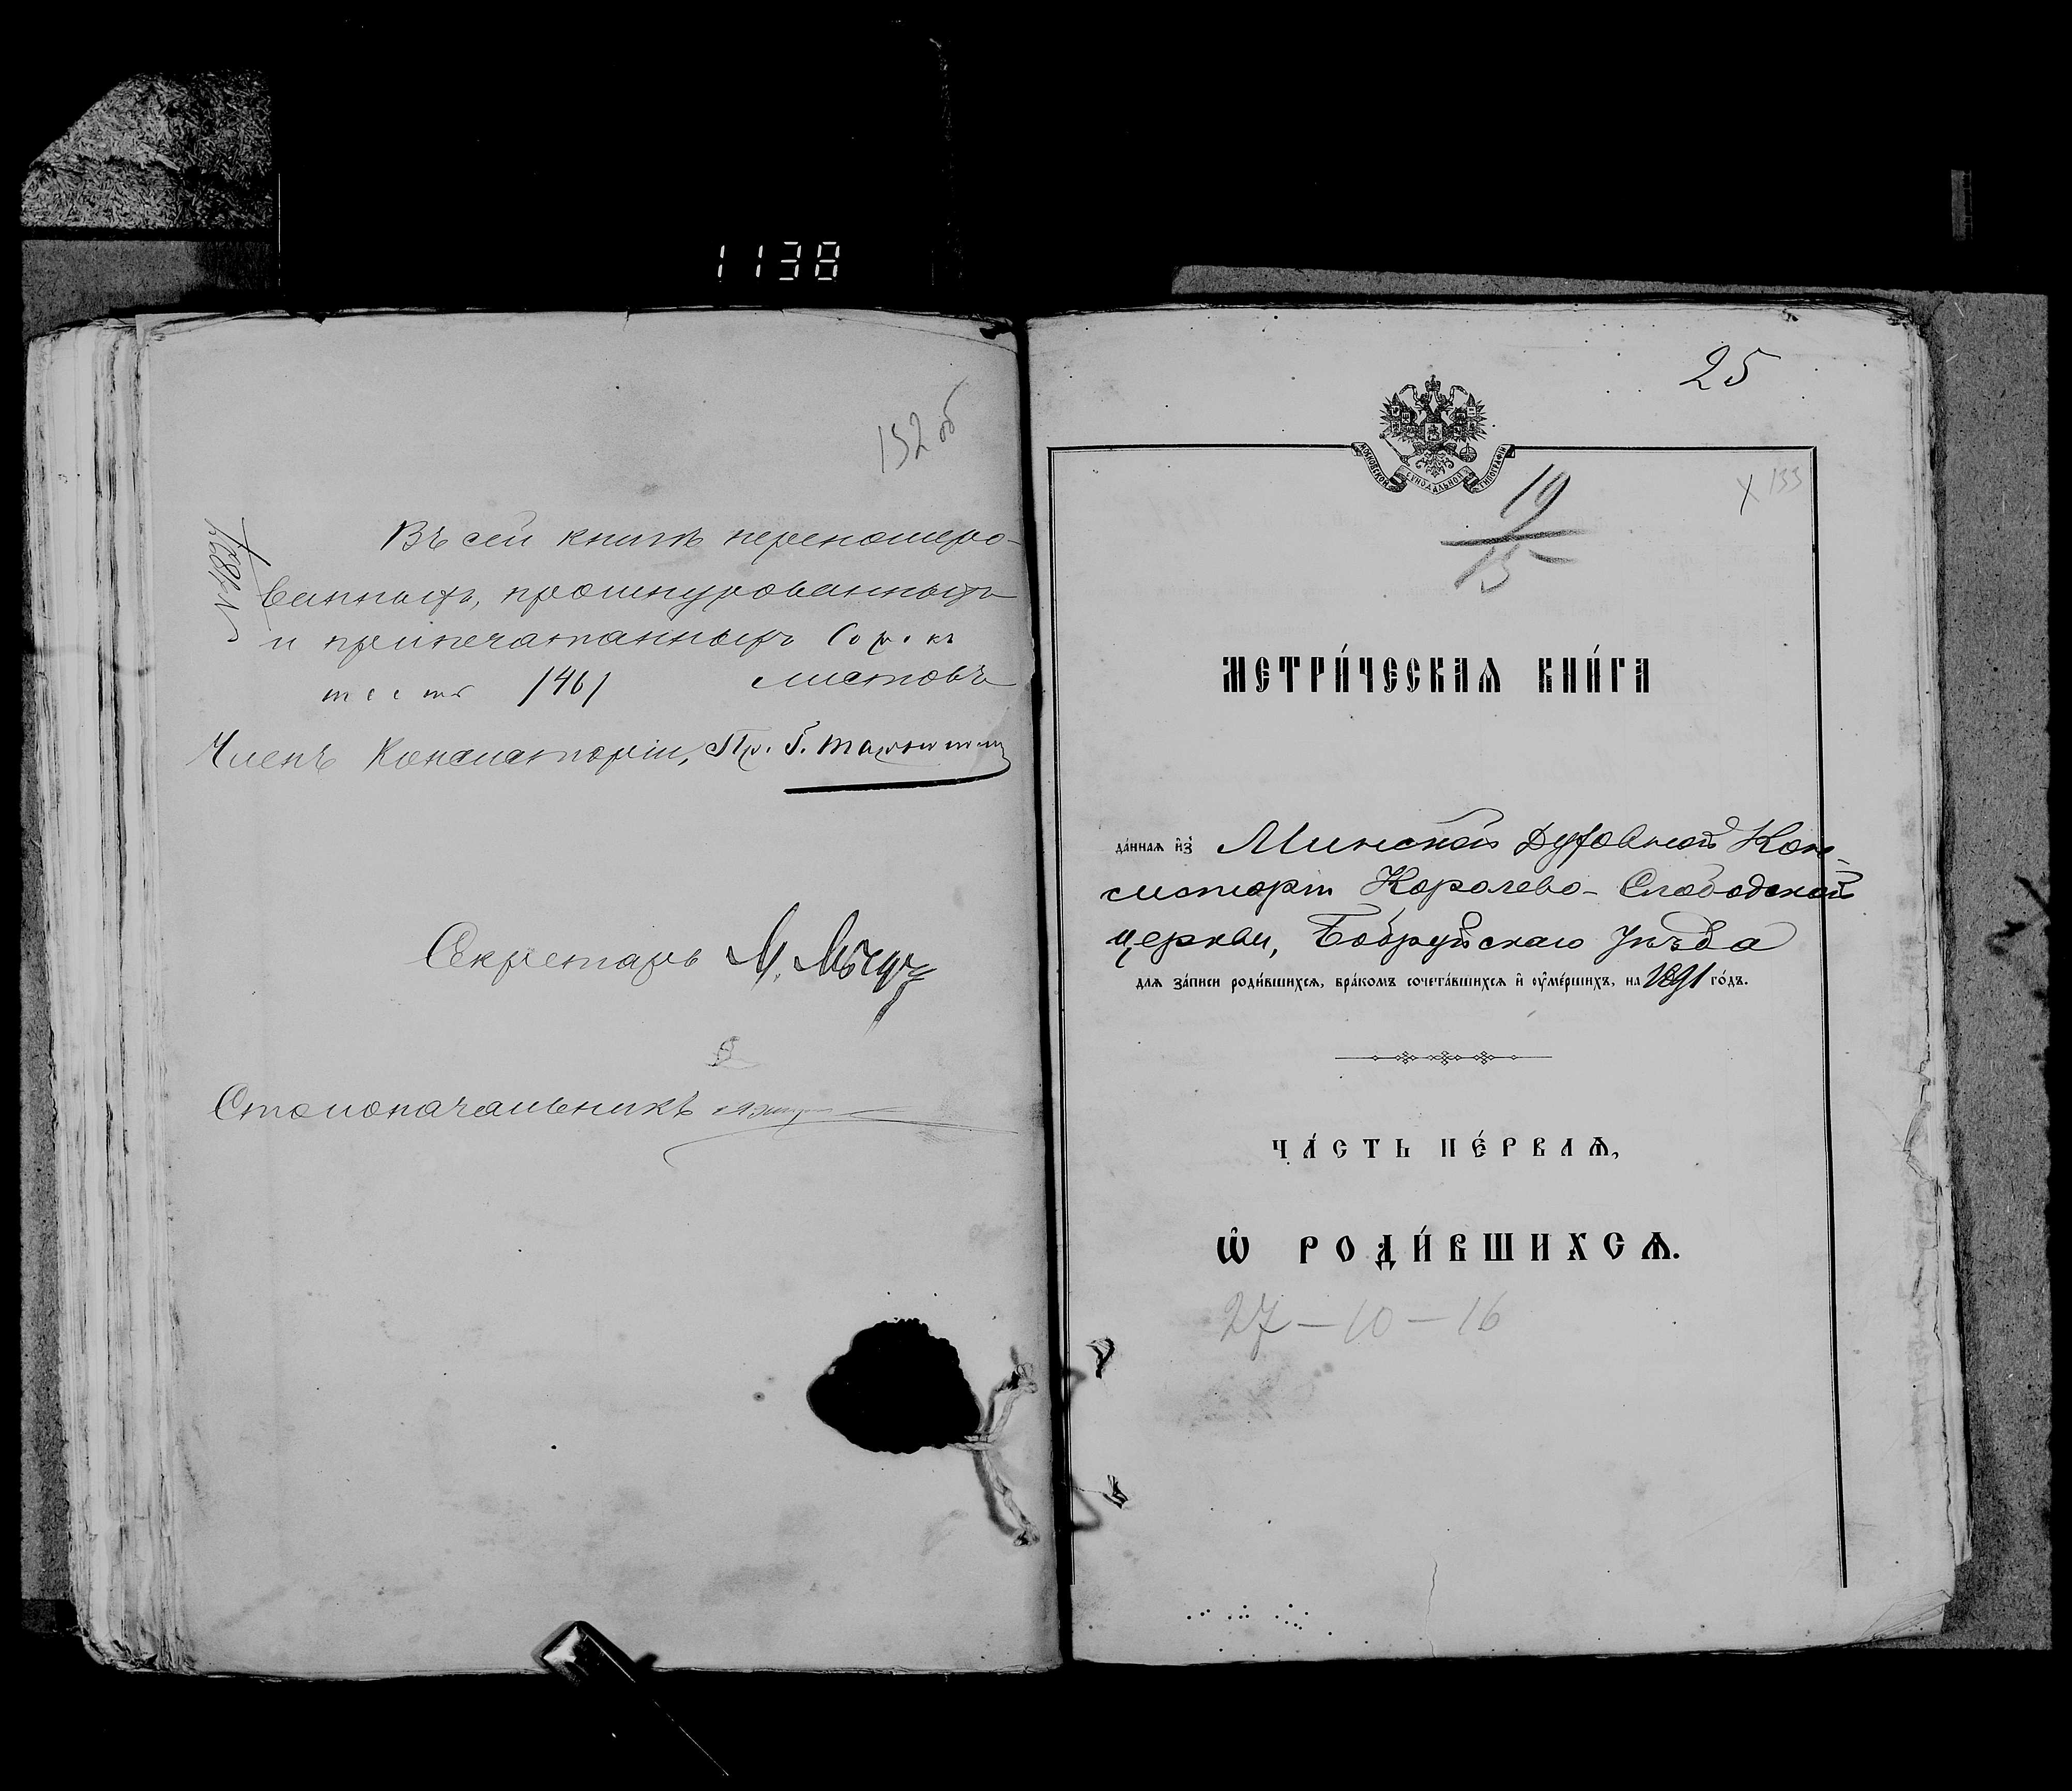 1138
132 об
Въ сей книгѣ перенумеро-
ванныхъ, прошнурованныхъ
и припечатанныхъ Сорокъ
шесть /46/ листовъ
Членъ Консисторіи, Пр. Г.
Секретарь М.
Столоначальникъ
25
МОСКОВСКОЙ СѴНОДАЛЬНОЙ ТИПОГРАФІИ
19
15
X 133
МЕТРИ́ЧЕСКАѦ КНИ́ГА
да́ннаѧ и҆з̾ Минской Духовной Кон-
систоріи Королево-Слободской
церкви, Бобруйскаго уѣзда
длѧ за́писи роди́вшихсѧ, бра́комъ сочета́вшихсѧ и҆ ᲂу҆ме́ршихъ, на 1891 го́дъ.
ЧА́СТЬ ПЕ́РВАѦ,
Ѽ РОДИ́ВШИХСѦ.
27 - 10 - 16